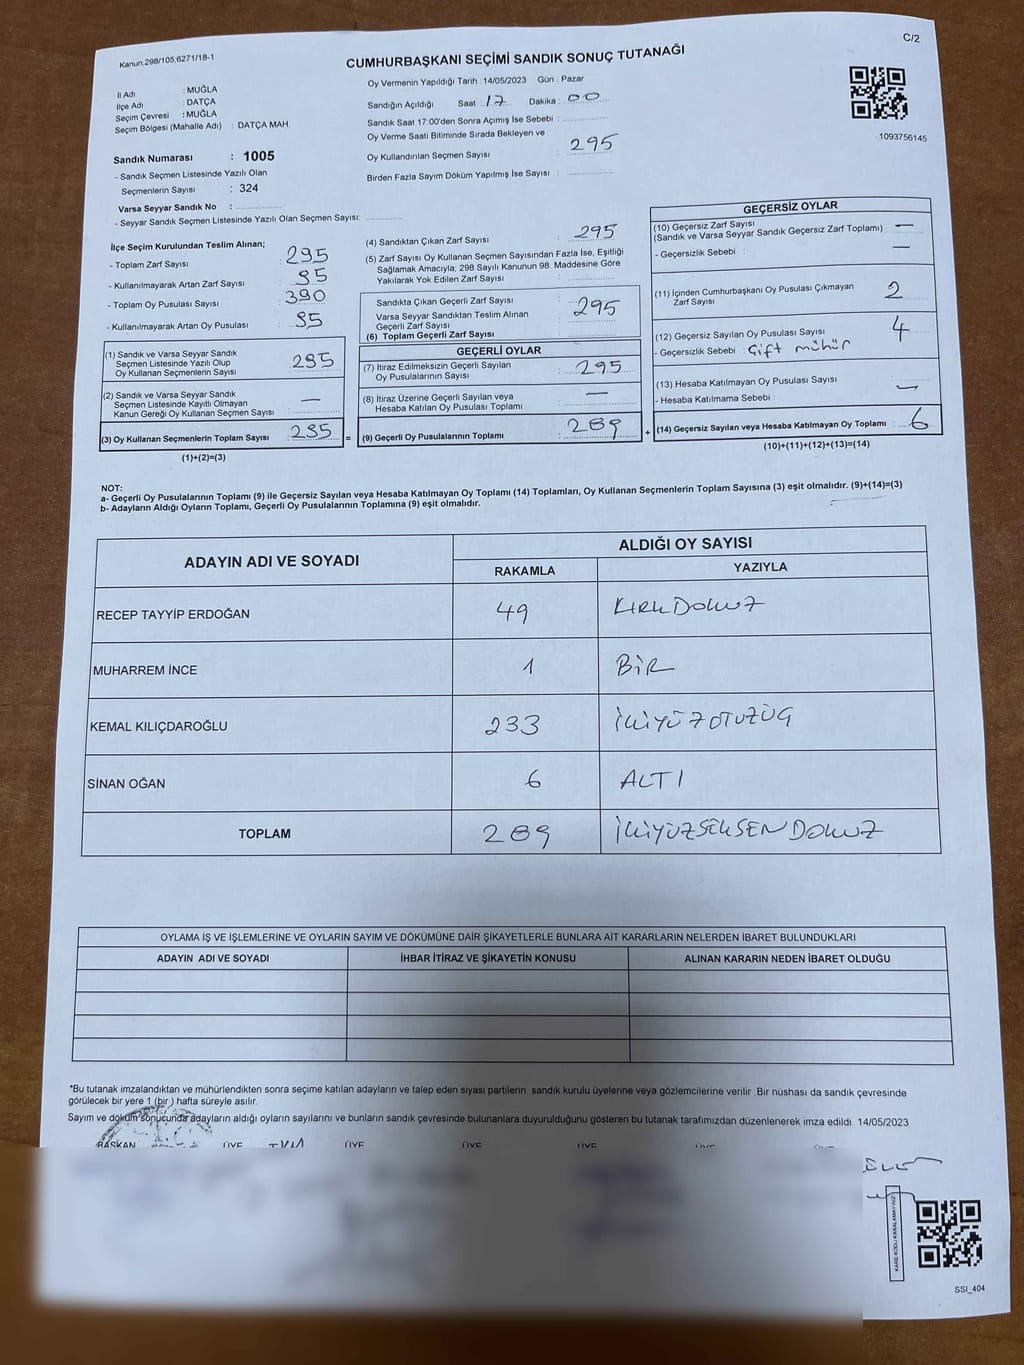 Kanun.298/105,6271/18-1
CUMHURBAŞKANI SEÇİMİ SANDIK SONUÇ TUTANAĞI
C/2
İl Adı : MUĞLA
İlçe Adı : DATÇA
Seçim Çevresi : MUĞLA
Seçim Bölgesi (Mahalle Adı) : DATÇA MAH
Sandık Numarası : 1005
- Sandık Seçmen Listesinde Yazılı Olan
Seçmenlerin Sayısı : 324
Varsa Seyyar Sandık No :
- Seyyar Sandık Seçmen Listesinde Yazılı Olan Seçmen Sayısı:
Oy Vermenin Yapıldığı Tarih : 14/05/2023 Gün : Pazar
Sandığın Açıldığı Saat : 17 Dakika : 00
Sandık Saat 17:00'den Sonra Açımış İse Sebebi :
Oy Verme Saati Bitiminde Sırada Bekleyen ve
Oy Kullandırılan Seçmen Sayısı : 295
Birden Fazla Sayım Döküm Yapılmış İse Sayısı :
1093756145
İlçe Seçim Kurulundan Teslim Alınan;
- Toplam Zarf Sayısı : 295
- Kullanılmayarak Artan Zarf Sayısı : 95
- Toplam Oy Pusulası Sayısı : 390
- Kullanılmayarak Artan Oy Pusulası : 95
(1) Sandık ve Varsa Seyyar Sandık
Seçmen Listesinde Yazılı Olup
Oy Kullanan Seçmenlerin Sayısı : 295
(2) Sandık ve Varsa Seyyar Sandık
Seçmen Listesinde Kayıtlı Olmayan
Kanun Gereği Oy Kullanan Seçmen Sayısı : —
(3) Oy Kullanan Seçmenlerin Toplam Sayısı : 295 =
(1)+(2)=(3)
(4) Sandıktan Çıkan Zarf Sayısı : 295
(5) Zarf Sayısı Oy Kullanan Seçmen Sayısından Fazla İse, Eşitliği
Sağlamak Amacıyla; 298 Sayılı Kanunun 98. Maddesine Göre
Yakılarak Yok Edilen Zarf Sayısı :
Sandıkta Çıkan Geçerli Zarf Sayısı : 295
Varsa Seyyar Sandıktan Teslim Alınan
Geçerli Zarf Sayısı
(6) Toplam Geçerli Zarf Sayısı
GEÇERLİ OYLAR
(7) İtiraz Edilmeksizin Geçerli Sayılan
Oy Pusulalarının Sayısı : 295
(8) İtiraz Üzerine Geçerli Sayılan veya
Hesaba Katılan Oy Pusulası Toplamı : —
(9) Geçerli Oy Pusulalarının Toplamı : 289 +
GEÇERSİZ OYLAR
(10) Geçersiz Zarf Sayısı
(Sandık ve Varsa Seyyar Sandık Geçersiz Zarf Toplamı) : —
- Geçersizlik Sebebi : —
(11) İçinden Cumhurbaşkanı Oy Pusulası Çıkmayan
Zarf Sayısı : 2
(12) Geçersiz Sayılan Oy Pusulası Sayısı : 4
- Geçersizlik Sebebi : Çift mühür
(13) Hesaba Katılmayan Oy Pusulası Sayısı : —
- Hesaba Katılmama Sebebi :
(14) Geçersiz Sayılan veya Hesaba Katılmayan Oy Toplamı : 6
(10)+(11)+(12)+(13)=(14)
NOT:
a- Geçerli Oy Pusulalarının Toplamı (9) ile Geçersiz Sayılan veya Hesaba Katılmayan Oy Toplamı (14) Toplamları, Oy Kullanan Seçmenlerin Toplam Sayısına (3) eşit olmalıdır. (9)+(14)=(3)
b- Adayların Aldığı Oyların Toplamı, Geçerli Oy Pusulalarının Toplamına (9) eşit olmalıdır.
ADAYIN ADI VE SOYADI ALDIĞI OY SAYISI
RAKAMLA YAZIYLA
RECEP TAYYİP ERDOĞAN 49 KIRKDOKUZ
MUHARREM İNCE 1 BİR
KEMAL KILIÇDAROĞLU 233 İKİYÜZOTUZÜÇ
SİNAN OĞAN 6 ALTI
TOPLAM 289 İKİYÜZSEKSENDOKUZ
OYLAMA İŞ VE İŞLEMLERİNE VE OYLARIN SAYIM VE DÖKÜMÜNE DAİR ŞİKAYETLERLE BUNLARA AİT KARARLARIN NELERDEN İBARET BULUNDUKLARI
ADAYIN ADI VE SOYADI İHBAR İTİRAZ VE ŞİKAYETİN KONUSU ALINAN KARARIN NEDEN İBARET OLDUĞU
*Bu tutanak imzalandıktan ve mühürlendikten sonra seçime katılan adayların ve talep eden siyasi partilerin sandık kurulu üyelerine veya gözlemcilerine verilir. Bir nüshası da sandık çevresinde
görülecek bir yere 1 (bir) hafta süreyle asılır.
Sayım ve döküm sonucunda adayların aldığı oyların sayılarını ve bunların sandık çevresinde bulunanlara duyurulduğunu gösteren bu tutanak tarafımızdan düzenlenerek imza edildi. 14/05/2023
BAŞKAN ÜYE ÜYE ÜYE ÜYE ÜYE ÜYE
KARE KODU KARALAMAYINIZ
SSI_404